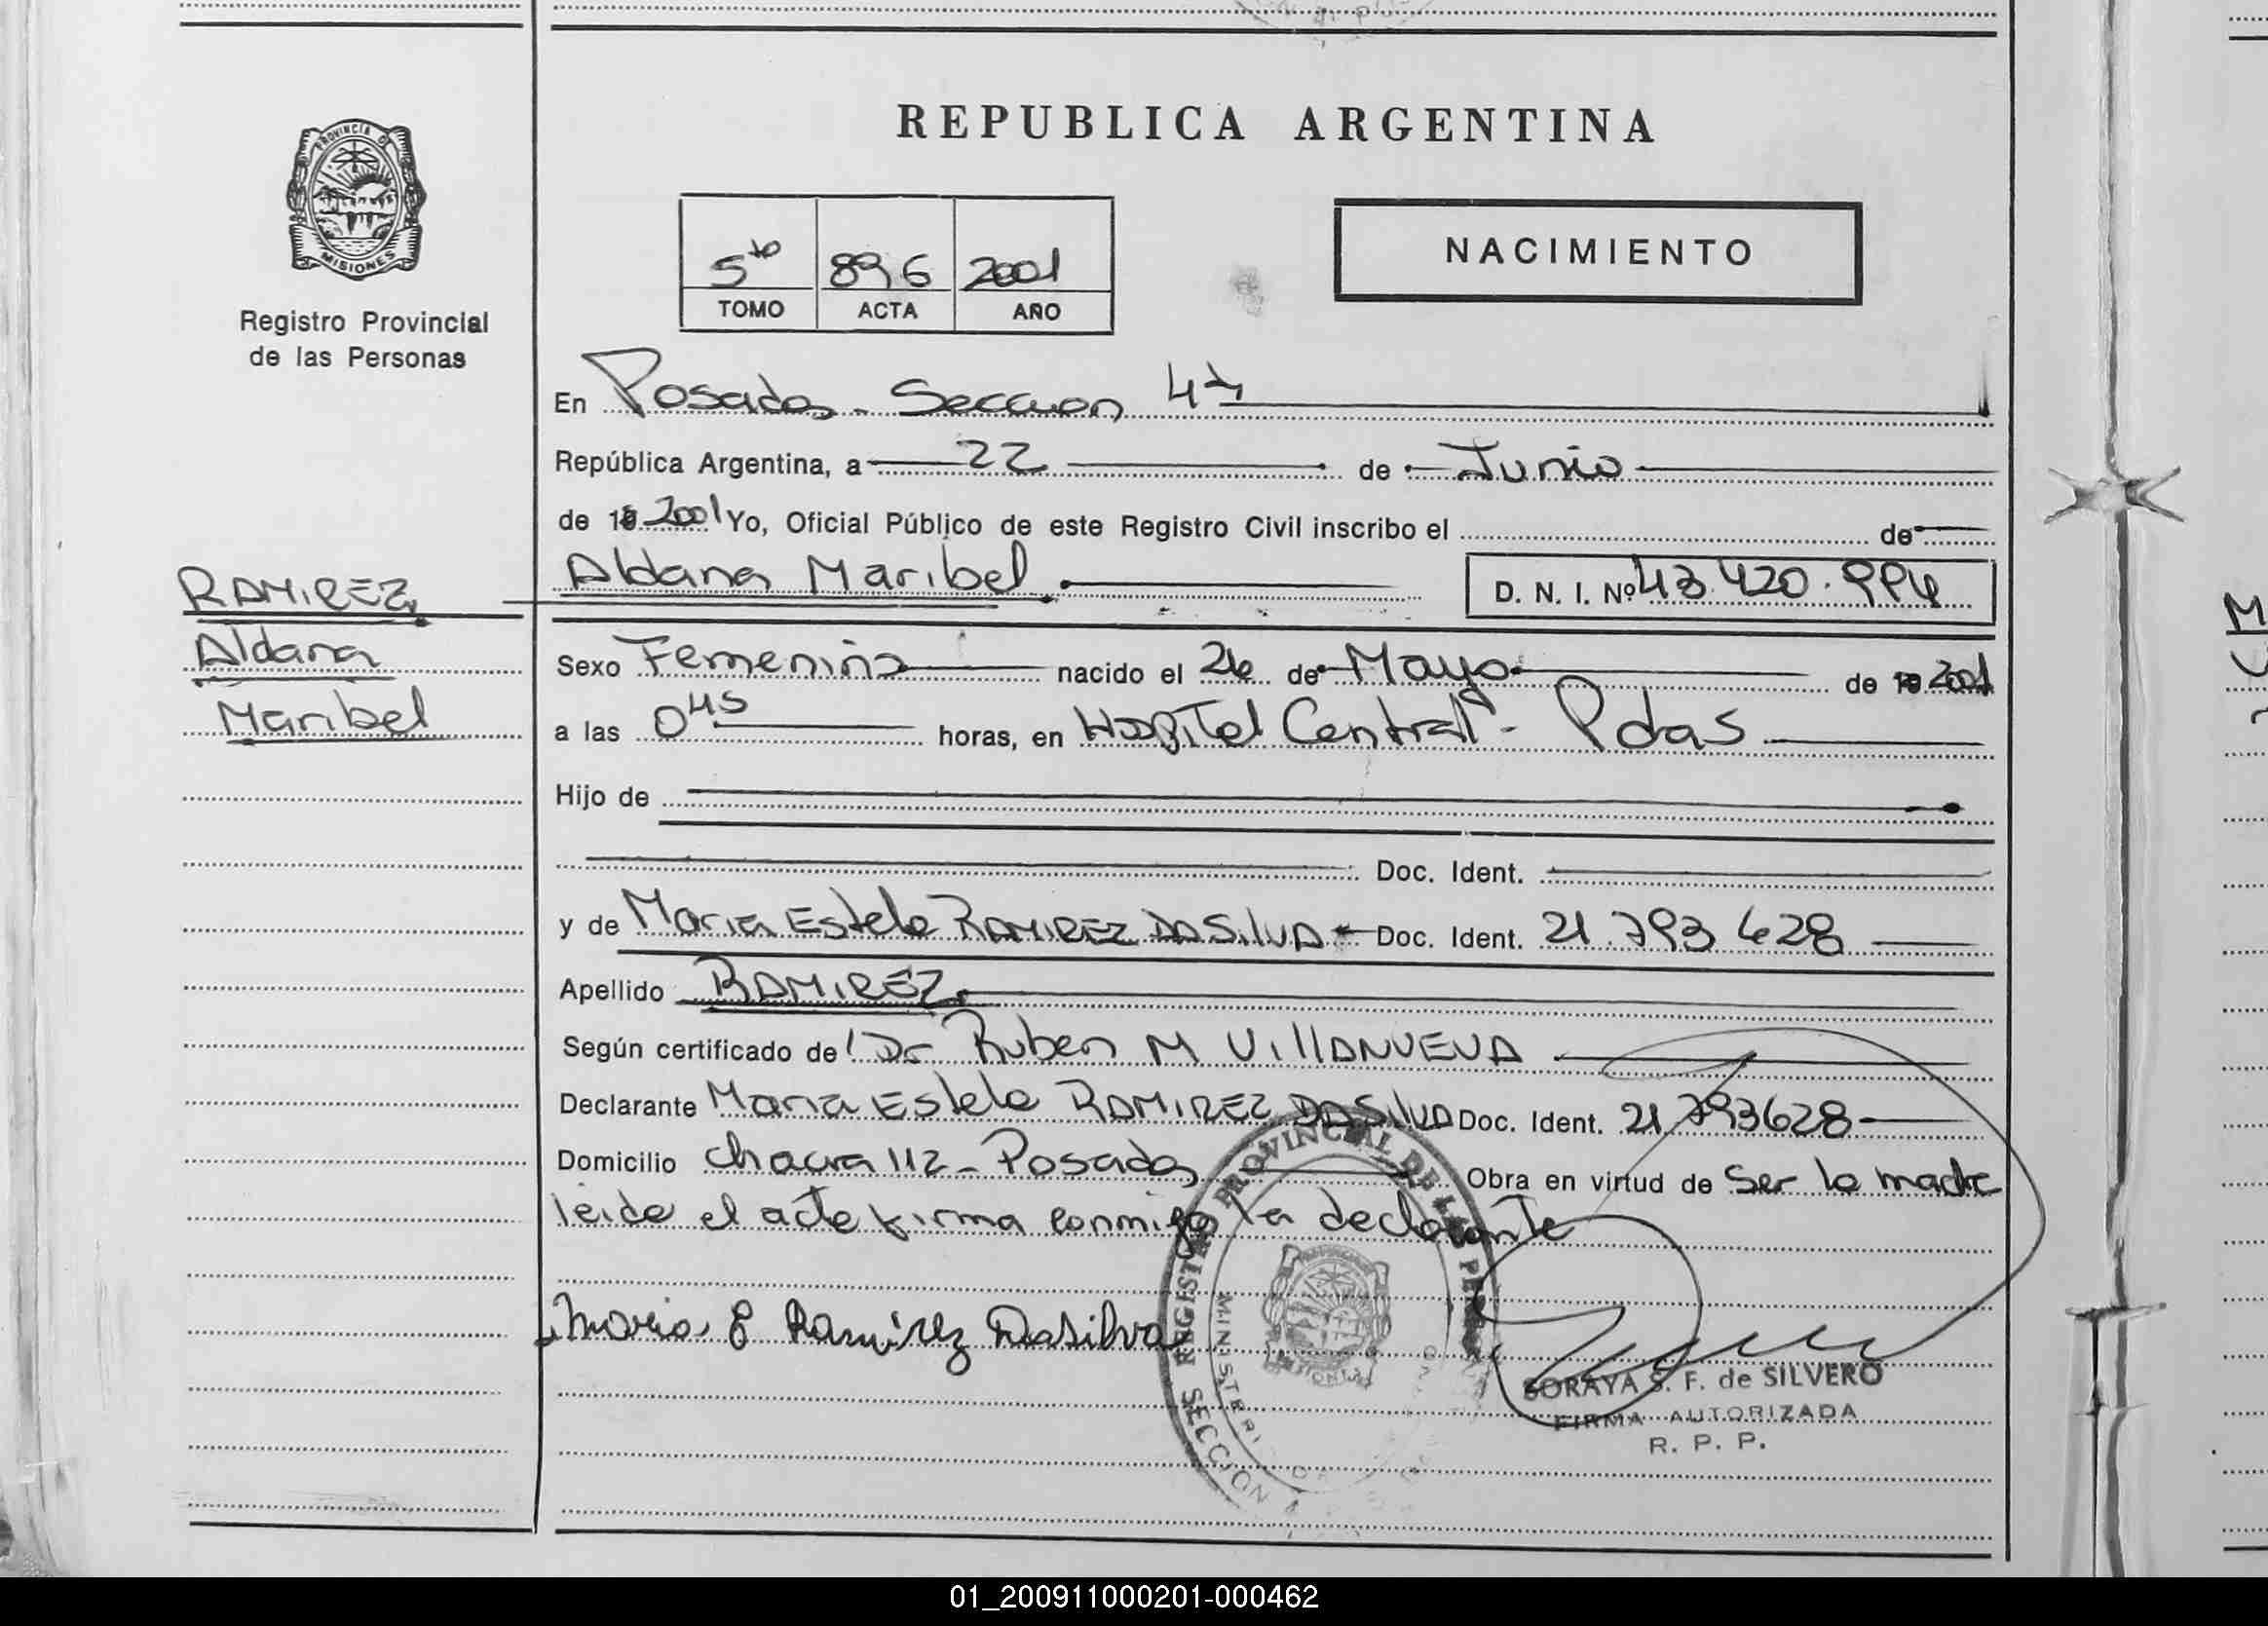 REPUBLICA ARGENTINA
PROVINCIA DE
MISIONES
Registro Provincial
de las Personas
5to 896 2001
TOMO ACTA AÑO
NACIMIENTO
En Posadas - Seccion 4ta
República Argentina, a 22 de Junio
de 19 2001 Yo, Oficial Público de este Registro Civil inscribo el de
RAMIREZ
Aldana
Maribel
Aldana Maribel D. N. I. Nº 43.420.994
Sexo Femenino nacido el 26 de Mayo de 19 2001
a las 0 45 horas, en Hospital Central - Pdas
Hijo de
Doc. Ident.
y de Maria Estela RAMIREZ DASILVA Doc. Ident. 21.793 628
Apellido RAMIREZ
Según certificado de Dr Ruben M VILLANUEVA
Declarante Maria Estela RAMIREZ DASILVA Doc. Ident. 21.793628
Domicilio chacra 112 - Posadas Obra en virtud de Ser la madre
leida el acta firma conmigo la declarante
Maria E Ramírez Dasilva
REGISTRO PROVINCIAL DE LAS
SECCION
MISIONES
SORAYA S. F. de SILVERO
FIRMA AUTORIZADA
R. P. P.
01_200911000201-000462